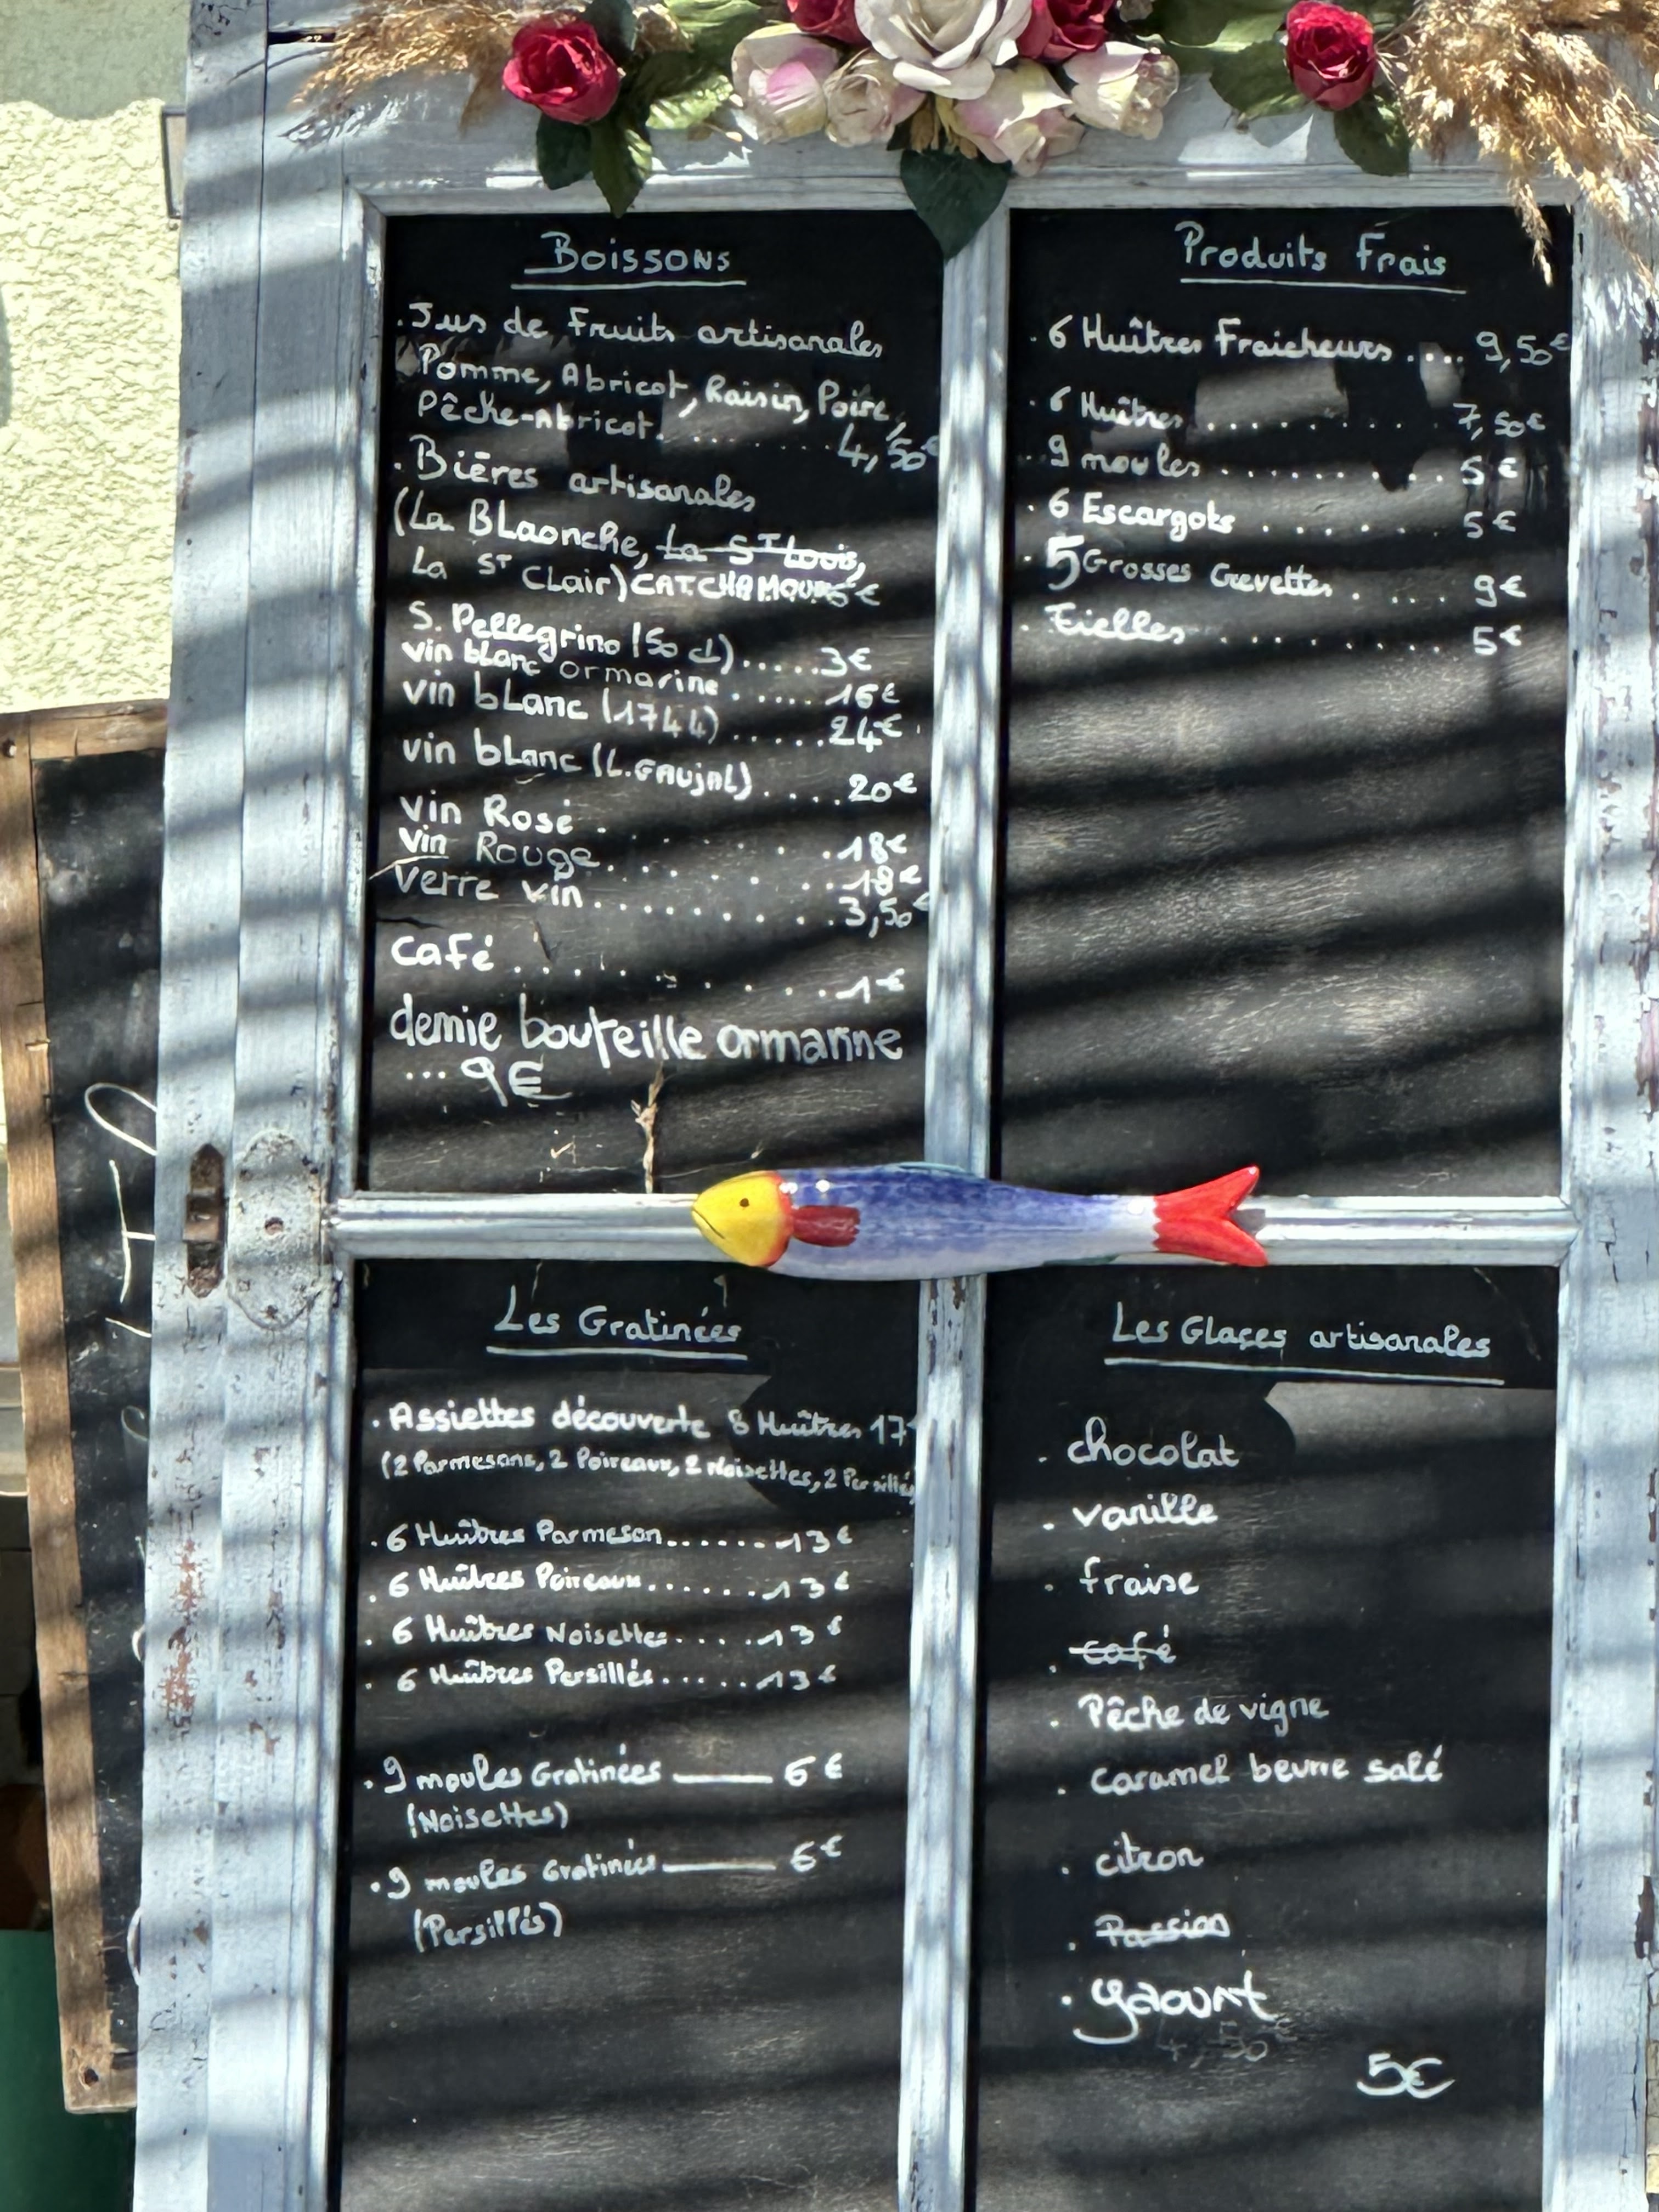 Boissons
. Jus de Fruits artisanales
Pomme, Abricot, Raisin, Poire,
Pêche-Abricot. ....... 4,50€
. Bières artisanales
(La BLaonche, La ST Louis,
La ST Clair) CAT.CHAMOUR 5€
S. Pellegrino (50 cl)..... 3€
vin blanc ormarine ...... 16€
vin blanc (1744) ..... 24€
vin blanc (L.GAUjAL) .... 20€
vin Rosé . . . . . . 18€
vin Rouge. . . . . . . 18€
Verre vin. . . . . . . . . . 3,50€
café . . . . . . . . . 1€
demie bouteille ormarine
... 9€
Produits Frais
. 6 Huîtres Fraicheurs .... 9,50€
. 6 Huîtres . . . . . . . . 7,50€
. 9 moules . . . . . . . . . . 5€
. 6 Escargots . . . . . . 5€
. 5 Grosses Crevettes . . . . 9€
. Tielles . . . . . . . . 5€
Les Gratinées
. Assiettes découverte 8 Huîtres 17€
(2 Parmesans, 2 Poireaux, 2 Noisettes, 2 Persillés)
. 6 Huîtres Parmesan....... 13€
. 6 Huîtres Poireaux....... 13€
. 6 Huîtres Noisettes..... 13€
. 6 Huîtres Persillés..... 13€
. 9 moules Gratinées —— 6€
(Noisettes)
. 9 moules Gratinées —— 6€
(Persillés)
Les Glaces artisanales
. chocolat
. vanille
. fraise
. café
. Pêche de vigne
. Caramel beurre salé
. citron
. Passion
. yaourt
4,50€
5€